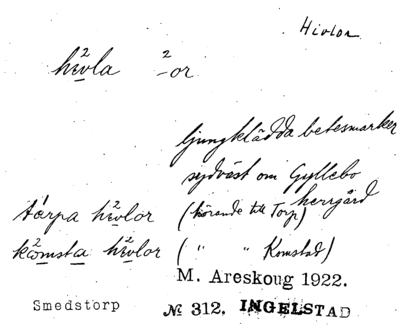 Hivlor
hi²vla ²-or
ljungklädda betesmarker
sydväst om Gyllebo
herrgård
tårpa hi²vlor (hörande till Torp)
kå²msta hi²vlor ( " " Komstad)
M. Areskoug 1922.
Smedstorp № 312. INGELSTAD